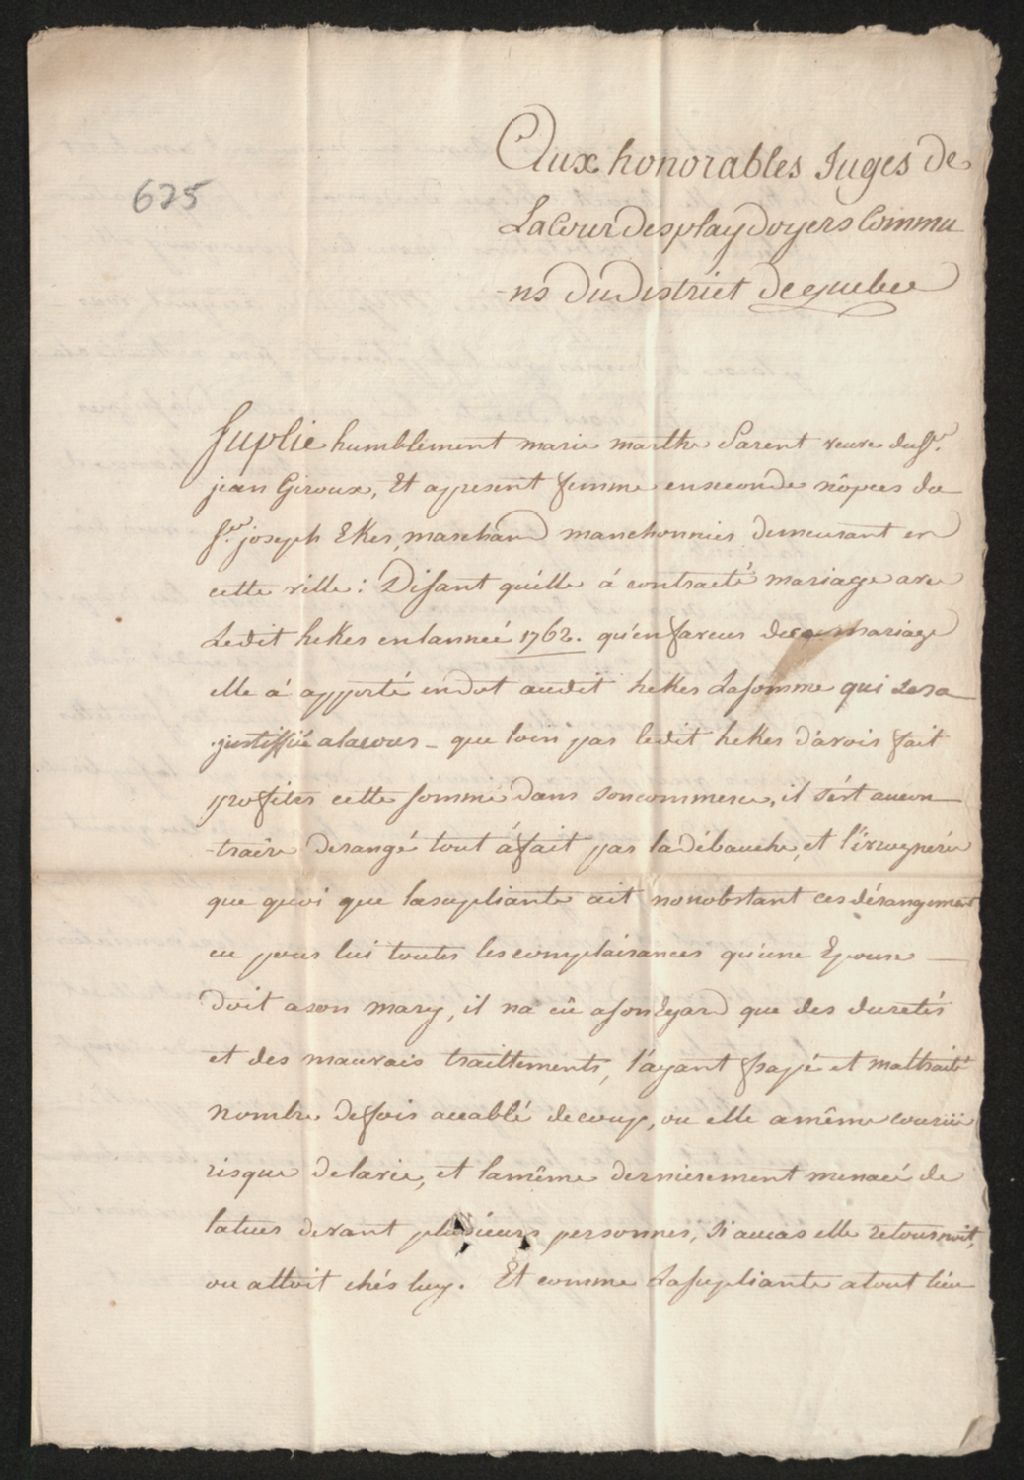 625
Aux honorables Juges de
La Cour des playdoyers Commu
-ns du District de quebec
Suplie humblement marie marthe Parent veuve du Sr.
jean Giroux, Et apresent femme en seconde nôpces du
Sr. joseph Ekes, marchand manchonnier demeurant en
cette ville: Disant qu'elle á contracté mariage avec
Ledit hekes en lanneé 1762. qu'en faveur de ce mariage
elle a apporté en dot audit hekes La somme qui sera
justiffiée a la cour - que loin par ledit hekes d'avoir fait
profiter cette somme dans son commerce, il s'est aucon
-traire derangé tout áfait par la débauche, et l'ivrognerie
que quoi que la supliante ait nonobstant ces dérangement
eu pour lui toutes les complaisances qu'une Epouse
doit a son mary, il na eû a son Egard que des duretés
et des mauvais traittements, l'ayant frapé et maltraité
nombre de fois accablé de coup, ou elle a même courüe
risque de la vie, et la même dernierement menacé de
la tuer devant plusieurs personnes, si aucas elle retournoit,
ou alloit chés luy. Et comme La supliante a tout lieu